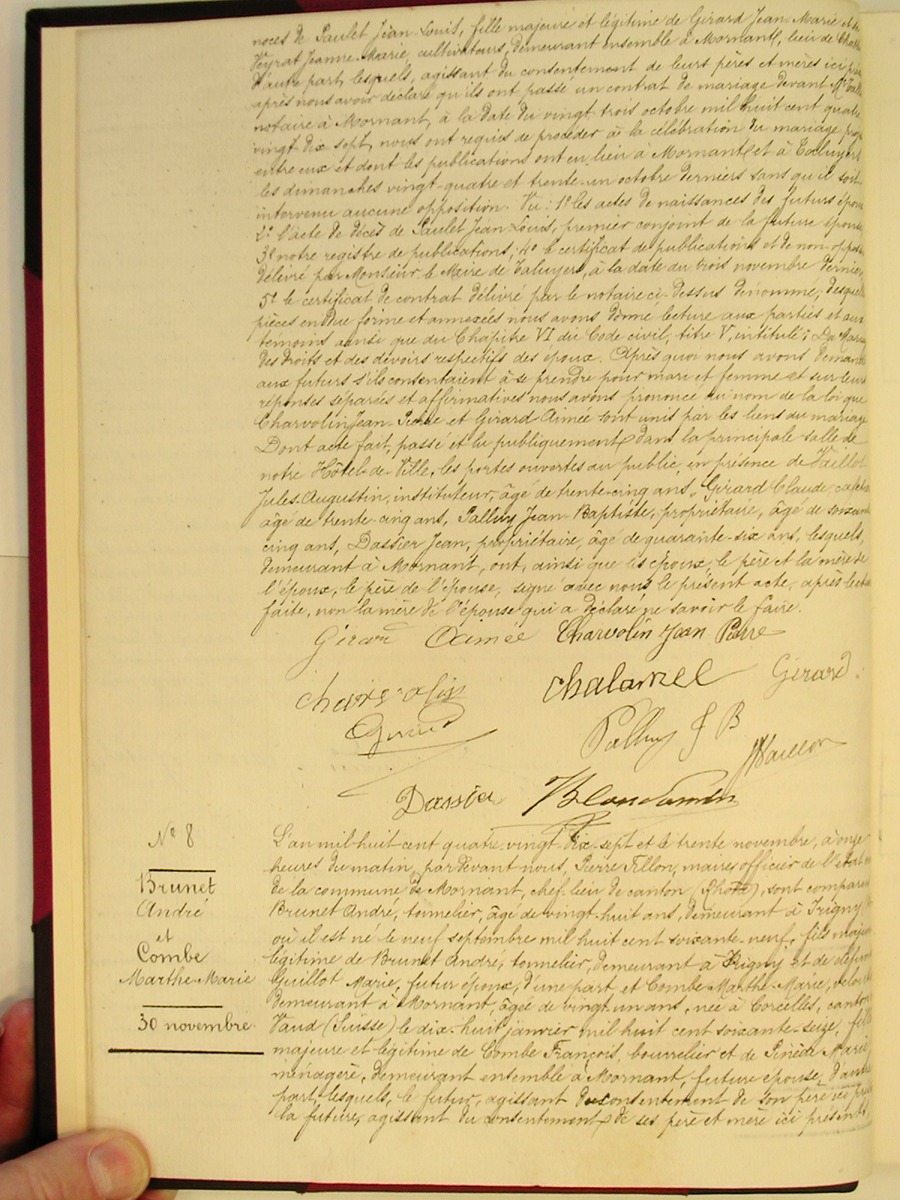 noces de Paulet Jean-Louis, fille majeure et légitime de Girard Jean-Marie et de
Veyrat Jeanne-Marie, cultivateurs, demeurant ensemble à Mornant, lieu de
d'autre part, lesquels, agissant du consentement de leurs pères et mères ici
après nous avoir déclaré qu'ils ont passé un contrat de mariage devant Me
notaire à Mornant, à la date du vingt trois octobre mil huit cent quatre
vingt dix sept, nous ont requis de procéder à la célébration du mariage proj
entre eux et dont les publications ont eu lieu à Mornant et à Taluyers
les dimanches vingt-quatre et trente-un octobre derniers sans qu'il soit
intervenu aucune opposition. Vu: 1° les actes de naissances des futurs époux
2° l'acte de décès de Paulet Jean-Louis, premier conjoint de la future épouse
3° notre registre de publications; 4° le certificat de publications et de non-oppos
délivré par Monsieur le Maire de Taluyers, à la date du trois novembre dernier
5° le certificat de contrat délivré par le notaire ci-dessus dénommé; desquel
pièces en due forme et annexées nous avons donné lecture aux parties et aux
témoins ainsi que du Chapitre VI du Code civil, titre V, intitulé: Du Maria
des droits et des devoirs respectifs des époux. Après quoi nous avons demandé
aux futurs s'ils consentaient à se prendre pour mari et femme et sur leurs
réponses séparées et affirmatives nous avons prononcé au nom de la loi que
Charvolin Jean-Pierre et Girard Aimée sont unis par les liens du mariage
Dont acte fait, passé et lu publiquement dans la principale salle de
notre Hôtel-de-Ville, les portes ouvertes au public, en présence de Vaillot
Jules Augustin, instituteur, âgé de trente-cinq ans, Girard Claude,
âgé de trente-cinq ans, Palluy Jean-Baptiste, propriétaire, âgé de soixante
cinq ans, Dassier Jean, propriétaire, âgé de quarante-six ans, lesquels,
demeurant à Mornant, ont, ainsi que les époux, le père et la mère de
l'époux, le père de l'épouse, signé avec nous le présent acte, après lecture
faite, non la mère de l'épouse qui a déclaré ne savoir le faire.
Girard Aimée Charvolin Jean Pierre
charvolin chalamel Girard
Girard Palluy J B
Vaillot
Dassier
N° 8
Brunet
André
et
Combe
Marthe-Marie
30 novembre
L'an mil huit cent quatre vingt dix-sept et le trente novembre, à onze
heures du matin, par devant nous, Pierre Fillon, maire, officier de l'état
de la commune de Mornant, chef-lieu de canton (Rhône), sont comparus
Brunet André, tonnelier, âgé de vingt-huit ans, demeurant à Irigny
où il est né le neuf septembre mil huit cent soixante-neuf, fils majeur
légitime de Brunet André, tonnelier, demeurant à Irigny et de défunte
Guillot Marie, futur époux, d'une part et Combe Marthe-Marie,
demeurant à Mornant, âgée de vingt-un ans, née à Corcelles, canton
Vaud (Suisse) le dix-huit janvier mil huit cent soixante-seize, fille
majeure et légitime de Combe François, bourrelier et de Marie
ménagère, demeurant ensemble à Mornant, future épouse, d'autre
part, lesquels, le futur, agissant du consentement de son père ici
la future, agissant du consentement de ses père et mère ici présents